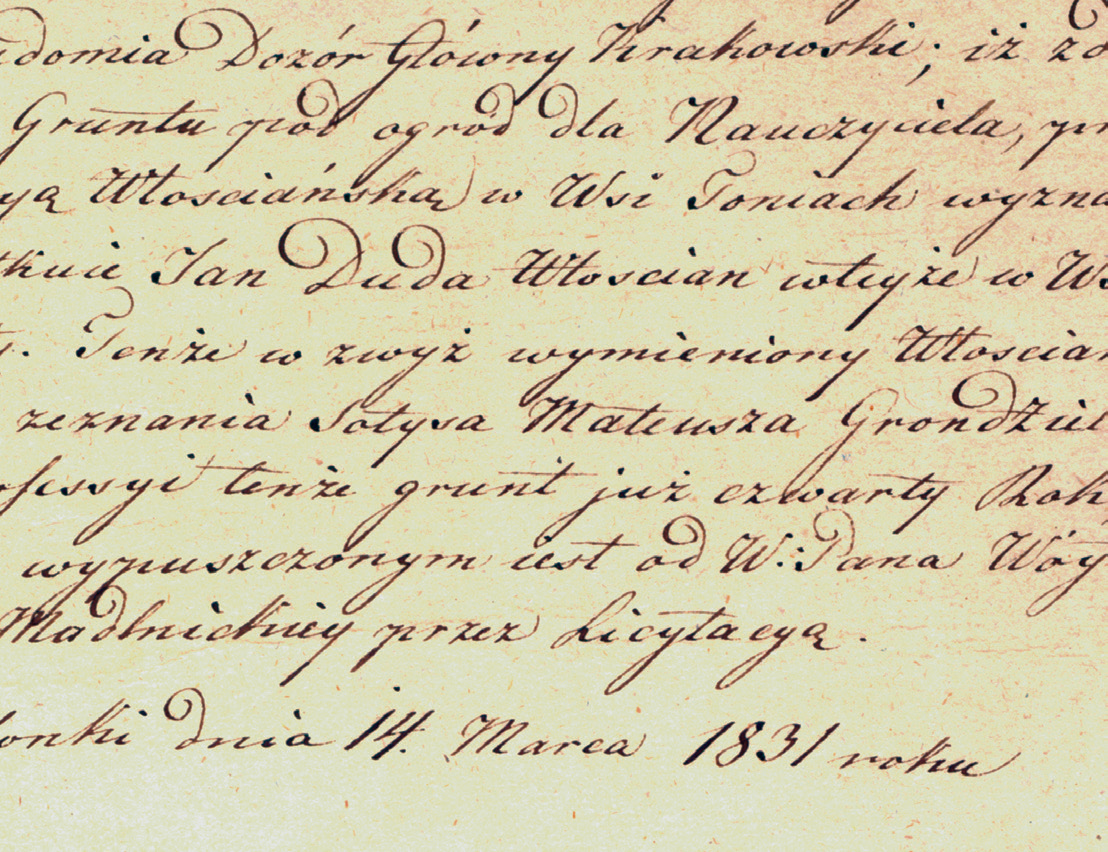 adomia Dozór Główny Krakowski; iż zo
Gruntu pod ogrod dla Nauczyciela, pr
yą Włosciańską w Wsi Toniach wyzna
tkuie Jan Duda Włoscian wteyże w Ws
Tenże w zwyż wymieniony Włoscian
zeznania Sołtysa Mateusza Grondziel
ofessyi tenże grunt już czwarty Rok
wypuszczonym iest od W: Pana Wóy
Madlnickiey przez Licytacyą.
onki dnia 14. Marca 1831 roku